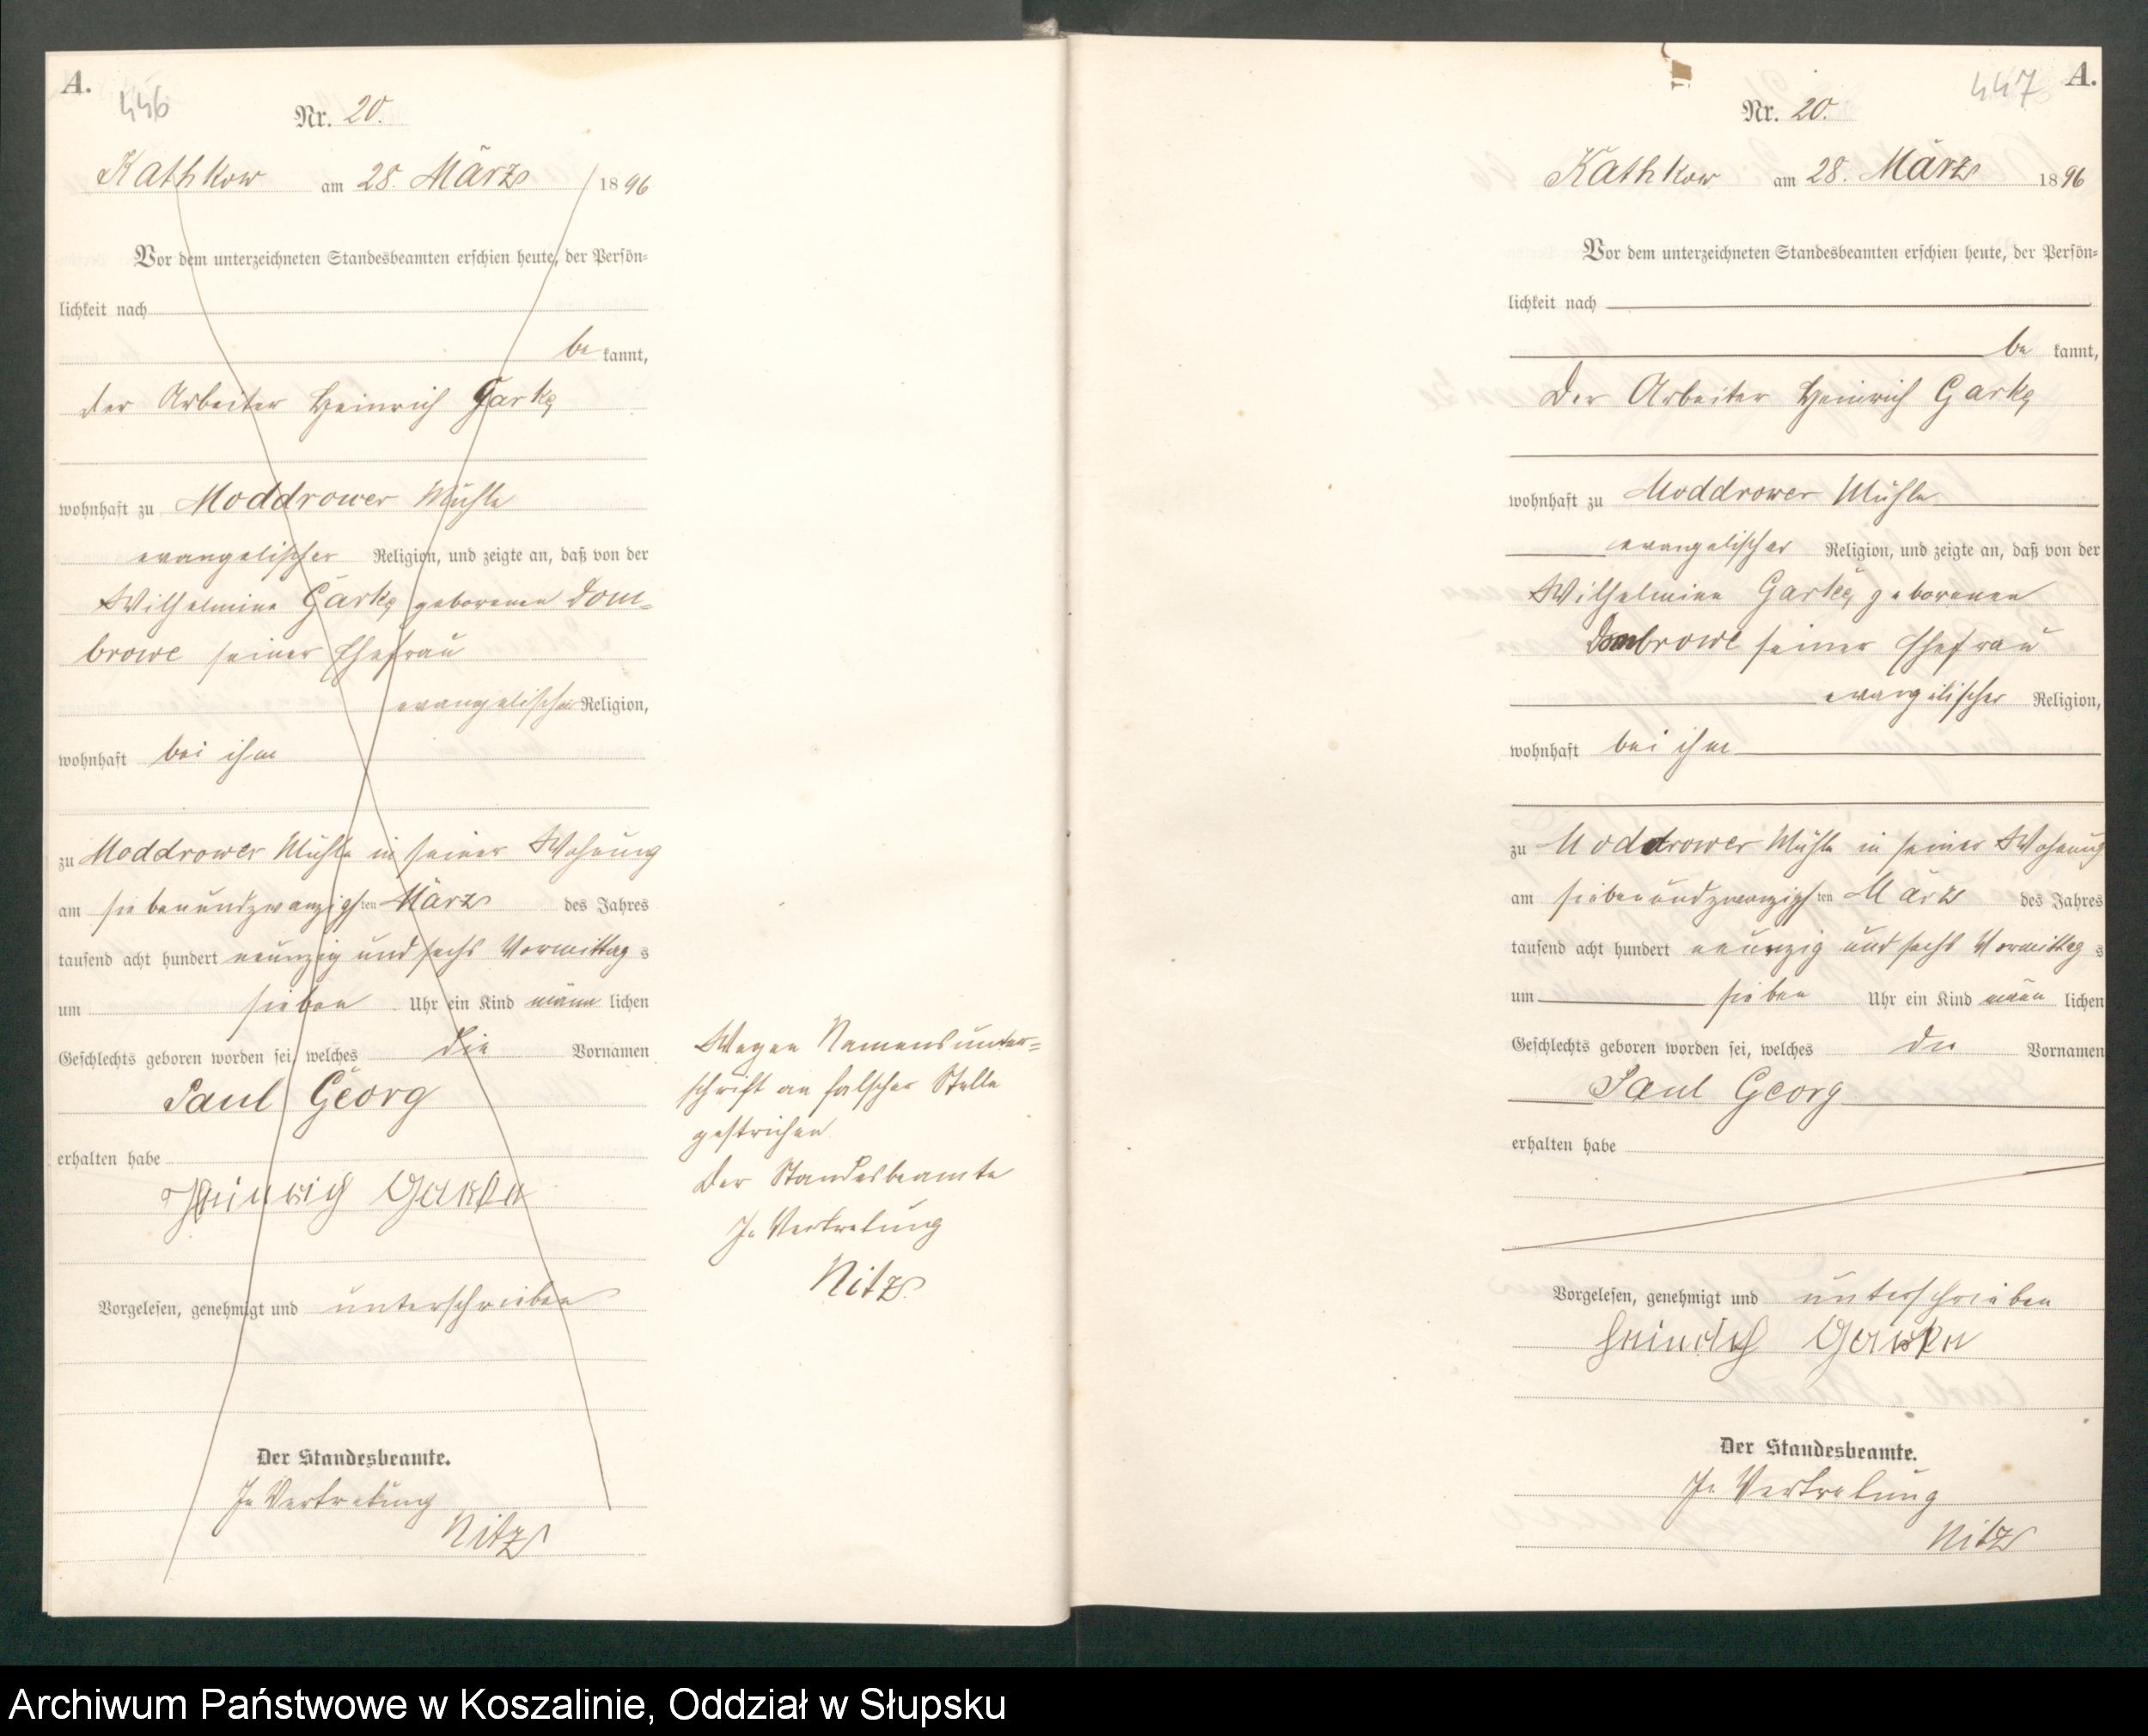 A.
446
Nr. 20.
Kathkow am 28. März 1896
Vor dem unterzeichneten Standesbeamten erschien heute, der Persön-
lichkeit nach
be kannt,
der Arbeiter Heinrich Garke
wohnhaft zu Moddrower Mühle
evangelischer Religion, und zeigte an, daß von der
Wilhelmine Garke, geborenen Dom-
browe seiner Ehefrau
evangelischer Religion,
wohnhaft bei ihm
zu Moddrower Mühle in seiner Wohnung
am siebenundzwanzigsten März des Jahres
tausend acht hundert neunzig und sechs Vormittags
um sieben Uhr ein Kind männlichen
Geschlechts geboren worden sei, welches die Vornamen
Paul Georg
erhalten habe
Heinrich Garke
Vorgelesen, genehmigt und unterschrieben
Der Standesbeamte.
In Vertretung
Nitz
Wegen Namensunter-
schrift an falscher Stelle
gestrichen.
Der Standesbeamte
In Vertretung
Nitz
447
A.
Nr. 20.
Kathkow am 28. März 1896
Vor dem unterzeichneten Standesbeamten erschien heute, der Persön-
lichkeit nach
be kannt,
Der Arbeiter Heinrich Garke
wohnhaft zu Moddrower Mühle
evangelischer Religion, und zeigte an, daß von der
Wilhelmine Garke, geborenen
Dombrowe seiner Ehefrau
evangelischer Religion,
wohnhaft bei ihm
zu Moddrower Mühle in seiner Wohnung
am siebenundzwanzigsten März des Jahres
tausend acht hundert neunzig und sechs Vormittags
um sieben Uhr ein Kind männlichen
Geschlechts geboren worden sei, welches die Vornamen
Paul Georg
erhalten habe
Vorgelesen, genehmigt und unterschrieben
Heinrich Garke
Der Standesbeamte.
In Vertretung
Nitz
Archiwum Państwowe w Koszalinie, Oddział w Słupsku